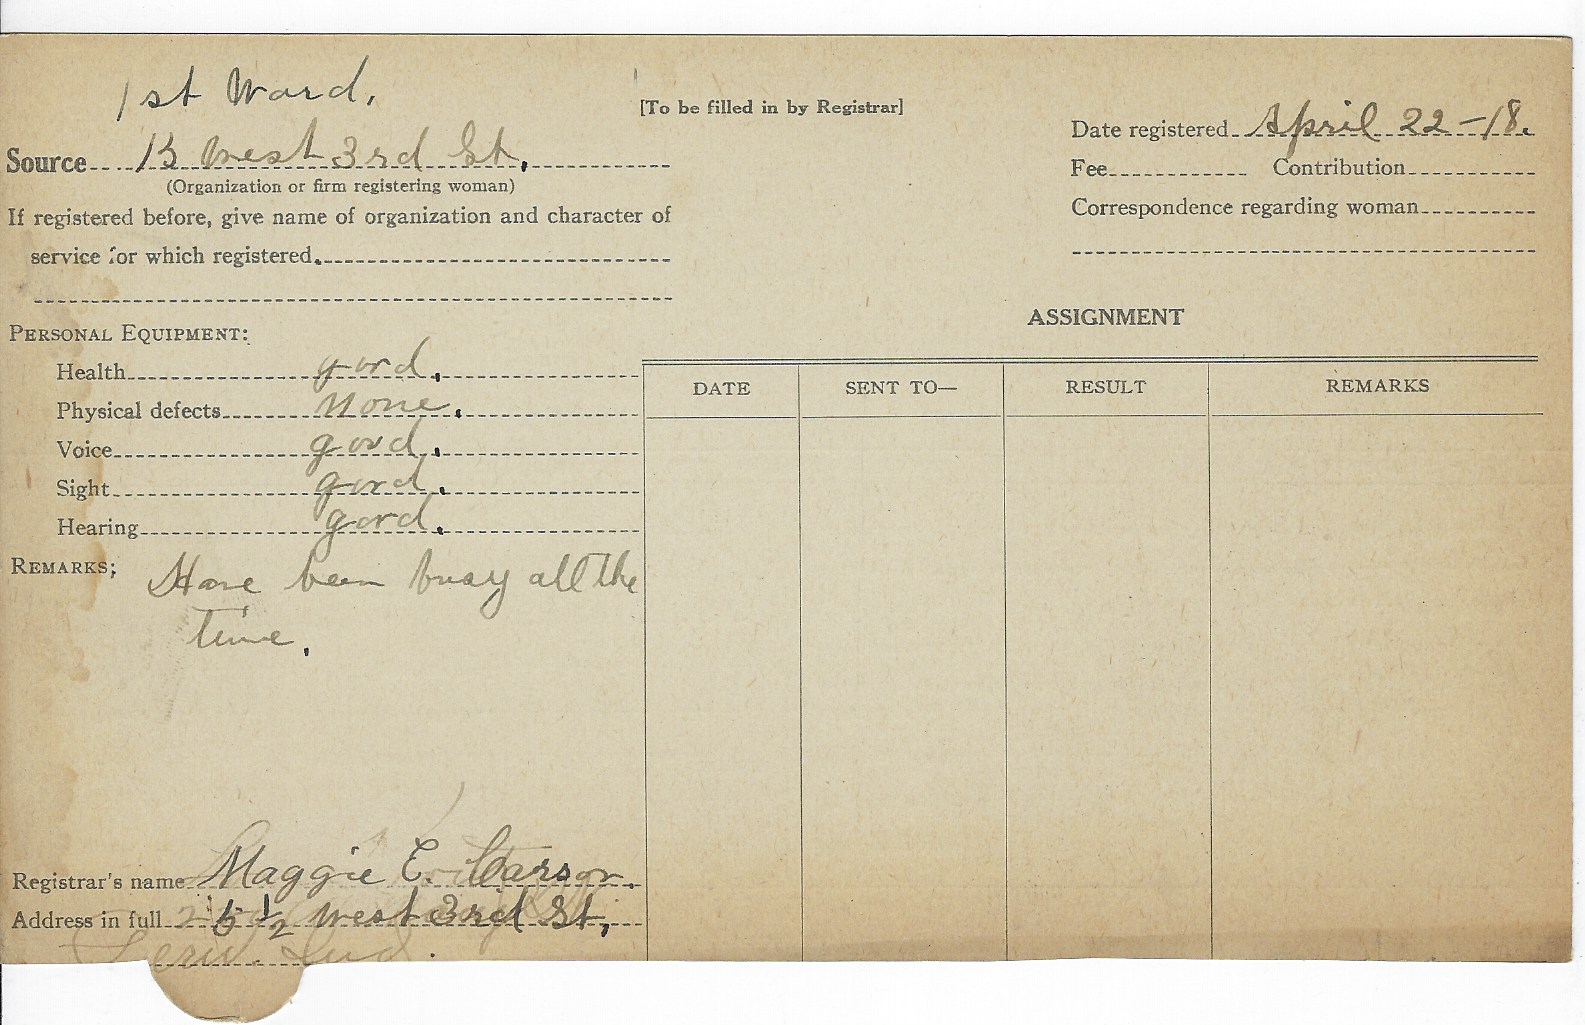 1st Ward.
[To be filled in by Registrar]
Date registered April 22-18.
Source 13 West 3rd St.
(Organization or firm registering woman)
Fee Contribution
If registered before, give name of organization and character of
Correspondence regarding woman
service for which registered.
ASSIGNMENT
PERSONAL EQUIPMENT:
Health good.
Physical defects None.
Voice good.
Sight good.
Hearing good.
DATE SENT TO— RESULT REMARKS
REMARKS; Have been busy all the
time.
Registrar's name Maggie E. Carson.
Address in full 1/2 West 3rd St,
Ind.